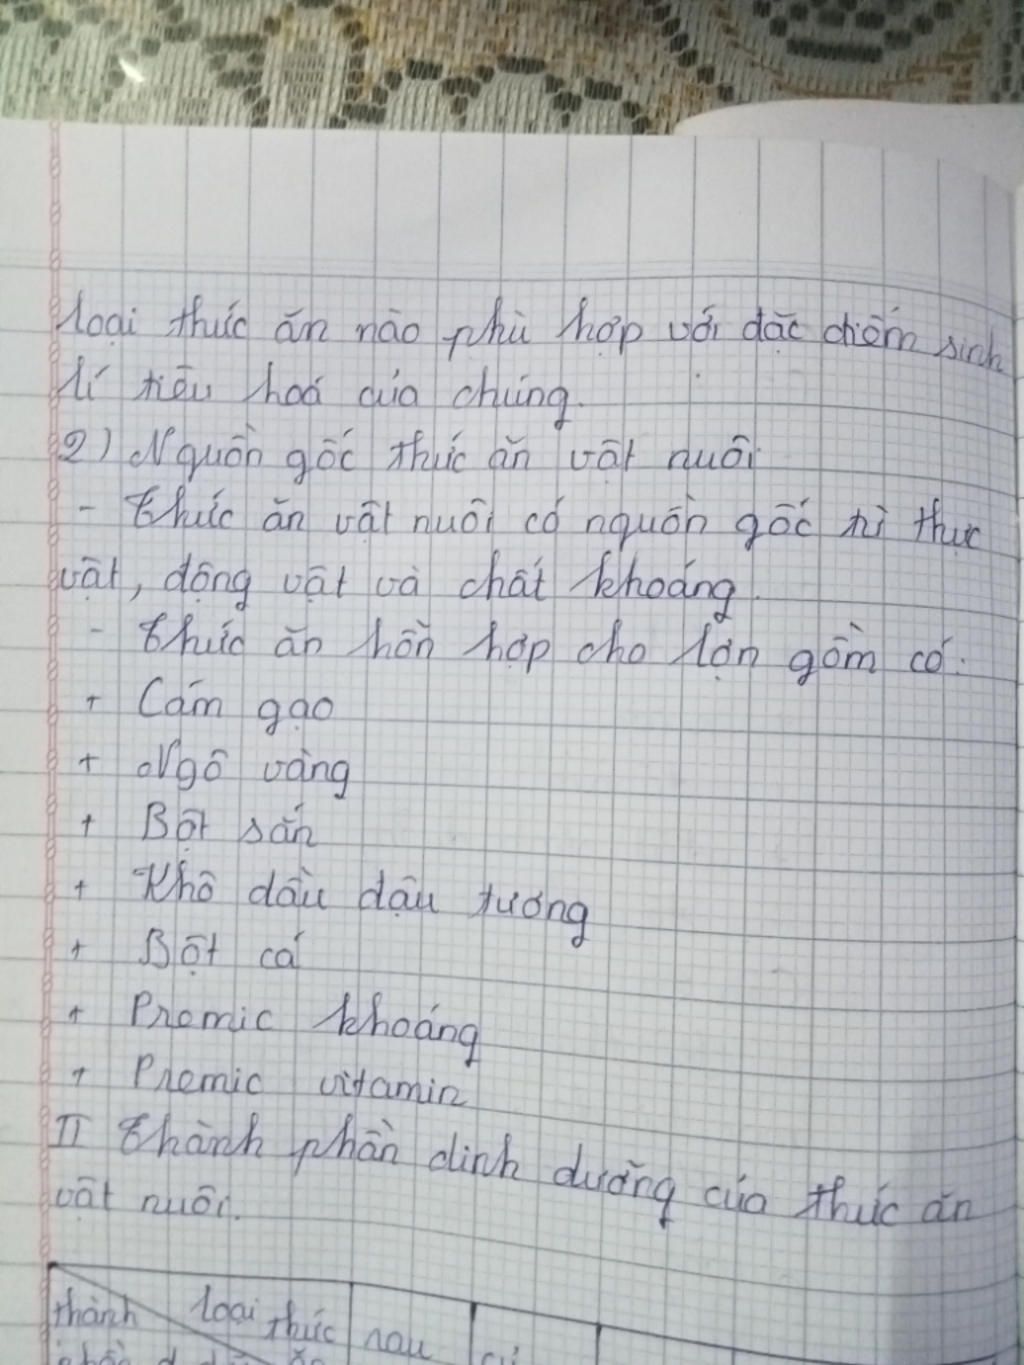 loại thức ăn nào phù hợp với đặc điểm sinh
lí tiêu hoá của chúng.
2) Nguồn gốc thức ăn vật nuôi
- Thức ăn vật nuôi có nguồn gốc từ thực
vật, động vật và chất khoáng.
- Thức ăn hỗn hợp cho lợn gồm có:
+ Cám gạo
+ Ngô vàng
+ Bột sắn
+ Khô dầu đậu tương
+ Bột cá
+ Premic khoáng
+ Premic vitamin
II Thành phần dinh dưỡng của thức ăn
vật nuôi.
thành loại thức rau